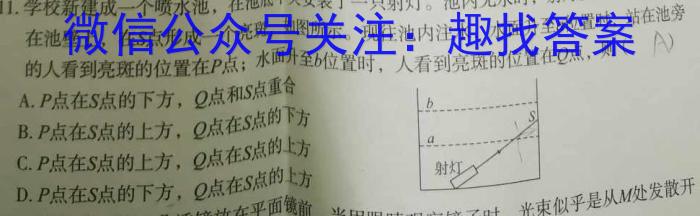 11.学校新建成一个喷水池，在池底中央安装了一只射灯。池内无水时，射
在池 微信公众号关注：趣找答案 站在池旁
的人看到亮斑的位置在P点；水面升至b位置时，人看到亮斑的位置在Q点，则 A）
A. P点在S点的下方，Q点和S点重合
B. P点在S点的上方，Q点在S点的下方
C. P点在S点的上方，Q点在S点的上方
D. P点在S点的下方，Q点在S点的上方
b
S
a
射灯
透镜放在平面镜前 当用眼睛观察镜子时，光束似乎是从M处发散开